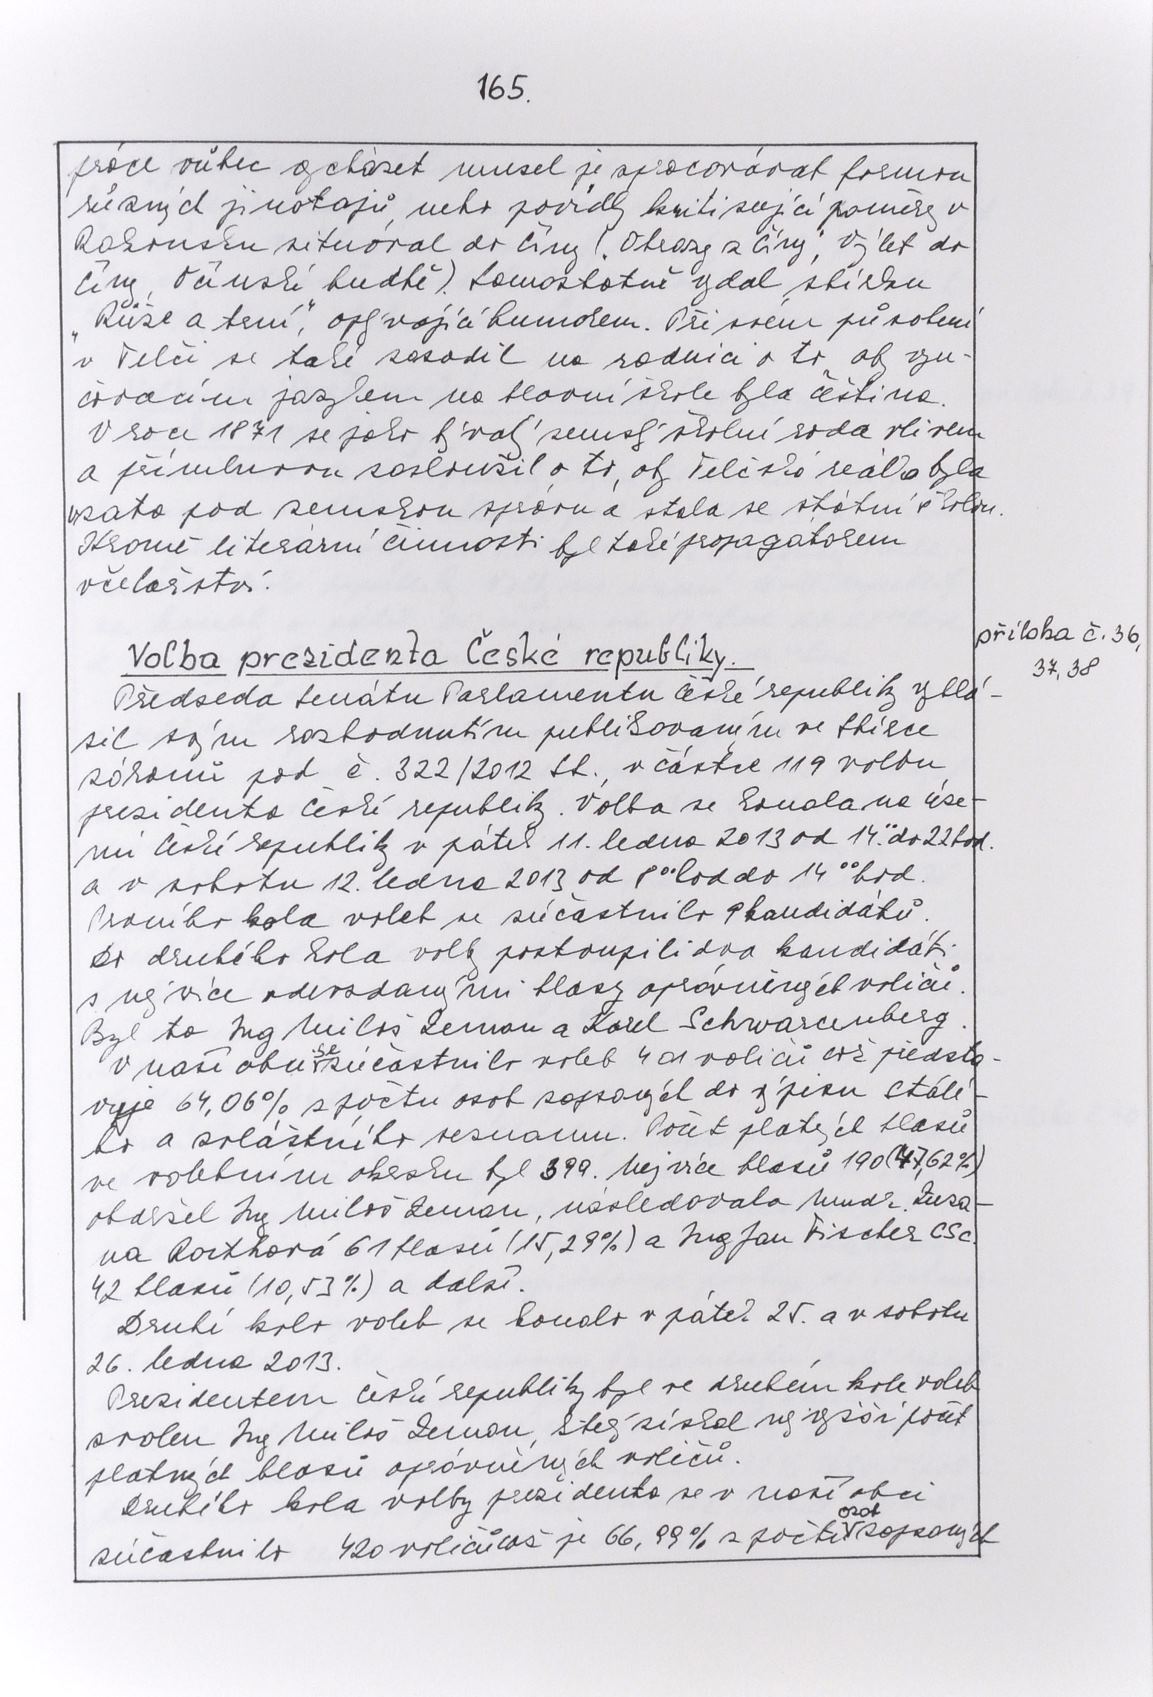 165.
práce vůbec vycházet musel je zpracovávat formou
různých jinotajů, nebo povídky kritisující poměry v
Rakousku situoval do Číny (. Obrazy z Číny, Výlet do
Číny, Včínské budhě). Samostatně vydal sbírku
„Růže a trní", oplývající humorem. Při svém působení
v Telči se také zasadil na radnici o to, aby vyu-
čovacím jazykem na hlavní škole byla čeština.
V roce 1871 se jako bývalý zemský školní rada vlivem
a přímluvou zasloužil o to, aby Telčská reálka byla
vzata pod zemskou správu a stala se státní školou.
Kromě literární činnosti byl také propagátorem
včelařství.
Volba prezidenta České republiky.
příloha č. 36,
37, 38
Předseda Senátu Parlamentu České republiky vyhlá-
sil svým rozhodnutím publikovaným ve Sbírce
zákonů pod č. 322/2012 Sb., v částce 119 volbu
prezidenta České republiky. Volba se konala na úze-
mí České republiky v pátek 11. ledna 2013 od 14.⁰⁰ do 22 hod.
a v sobotu 12. ledna 2013 od 8⁰⁰ hod do 14⁰⁰ hod.
Prvního kola voleb se súčastnilo 9 kandidátů.
Do druhého kola volby postoupili dva kandidáti
s nejvíce odevzdanými hlasy oprávněných voličů.
Byl to Ing Miloš Zeman a Karel Schwarcenberg.
V naší obci se súčastnilo voleb 401 voličů což předsta-
vuje 64,06% z počtu osob zapsaných do výpisu stálé-
ho a zvláštního seznamu. Počet platných hlasů
ve volebním okrsku byl 399. Nejvíce hlasů 190 (47,62%)
obdržel Ing Miloš Zeman, následovala Mudr. Zuza-
na Roithová 61 hlasů (15,29%) a Ing Jan Fischer CSc.
42 hlasů (10,53%) a další.
Druhé kolo voleb se konalo v pátek 25. a v sobotu
26. ledna 2013.
Prezidentem České republiky byl ve druhém kole voleb
zvolen Ing Miloš Zeman, který získal nejvyšší počet
platných hlasů oprávněných voličů.
Druhého kola volby prezidenta se v naší obci
súčastnilo 420 voličů což je 66,99% z počtu osob zapsaných